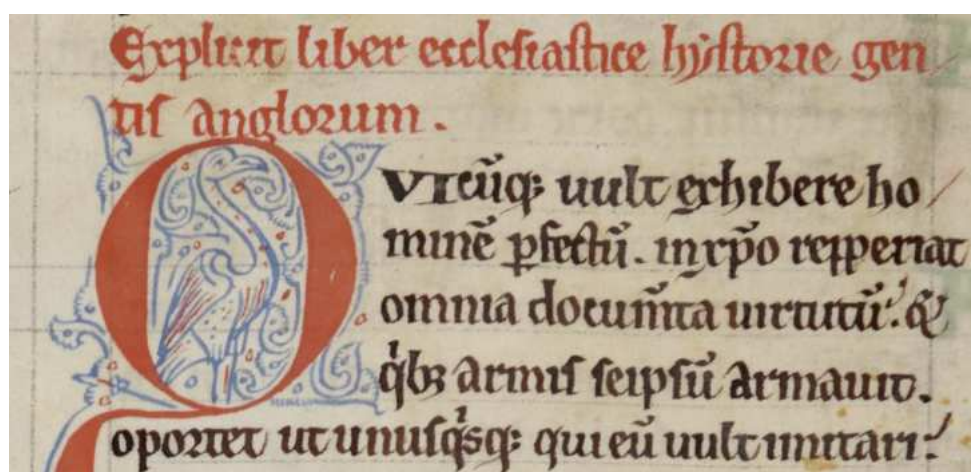 Explicit liber ecclesiastice hystorie gen/
tis anglorum.
QVIcūq; uult exhibere ho/
minē ꝑfectū. in xp̄o repperiat
omnia documn̄ta uirtutū. &
qͥbꝫ armis seipsū armauit.
oportet ut unusqͥsq; qui eū uult imitari.